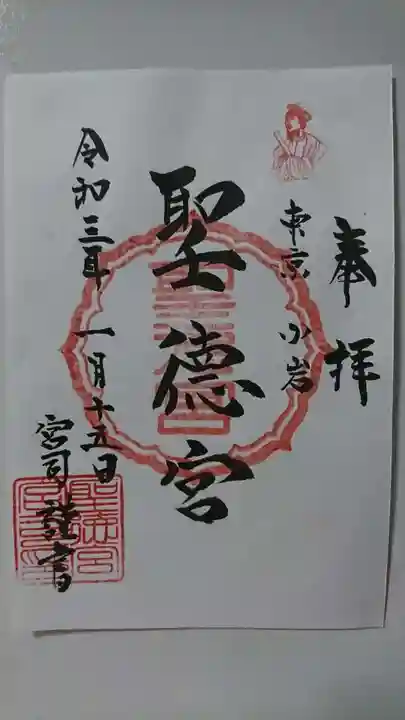 奉拝
東京 小岩
聖徳宮
令和三年 一月十五日
宮司 謹書